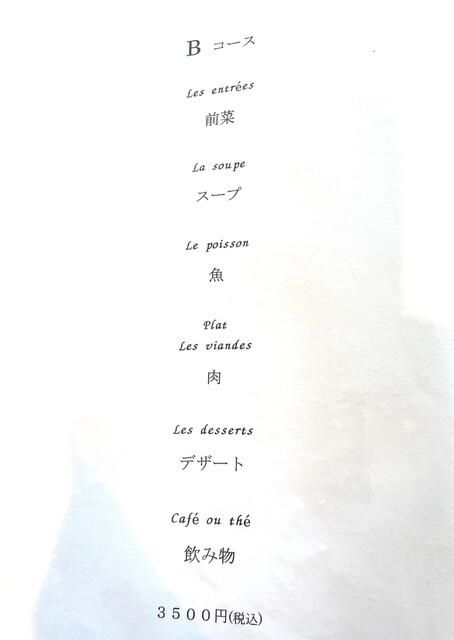 B コース
Les entrées
前菜
La soupe
スープ
Le poisson
魚
Plat
Les viandes
肉
Les desserts
デザート
Café ou thé
飲み物
３５００円(税込)